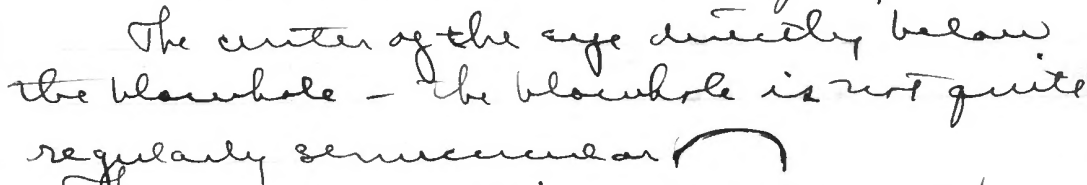 The center of the eye directly below
the blowhole – the blowhole is not quite
regularly semicircular
The